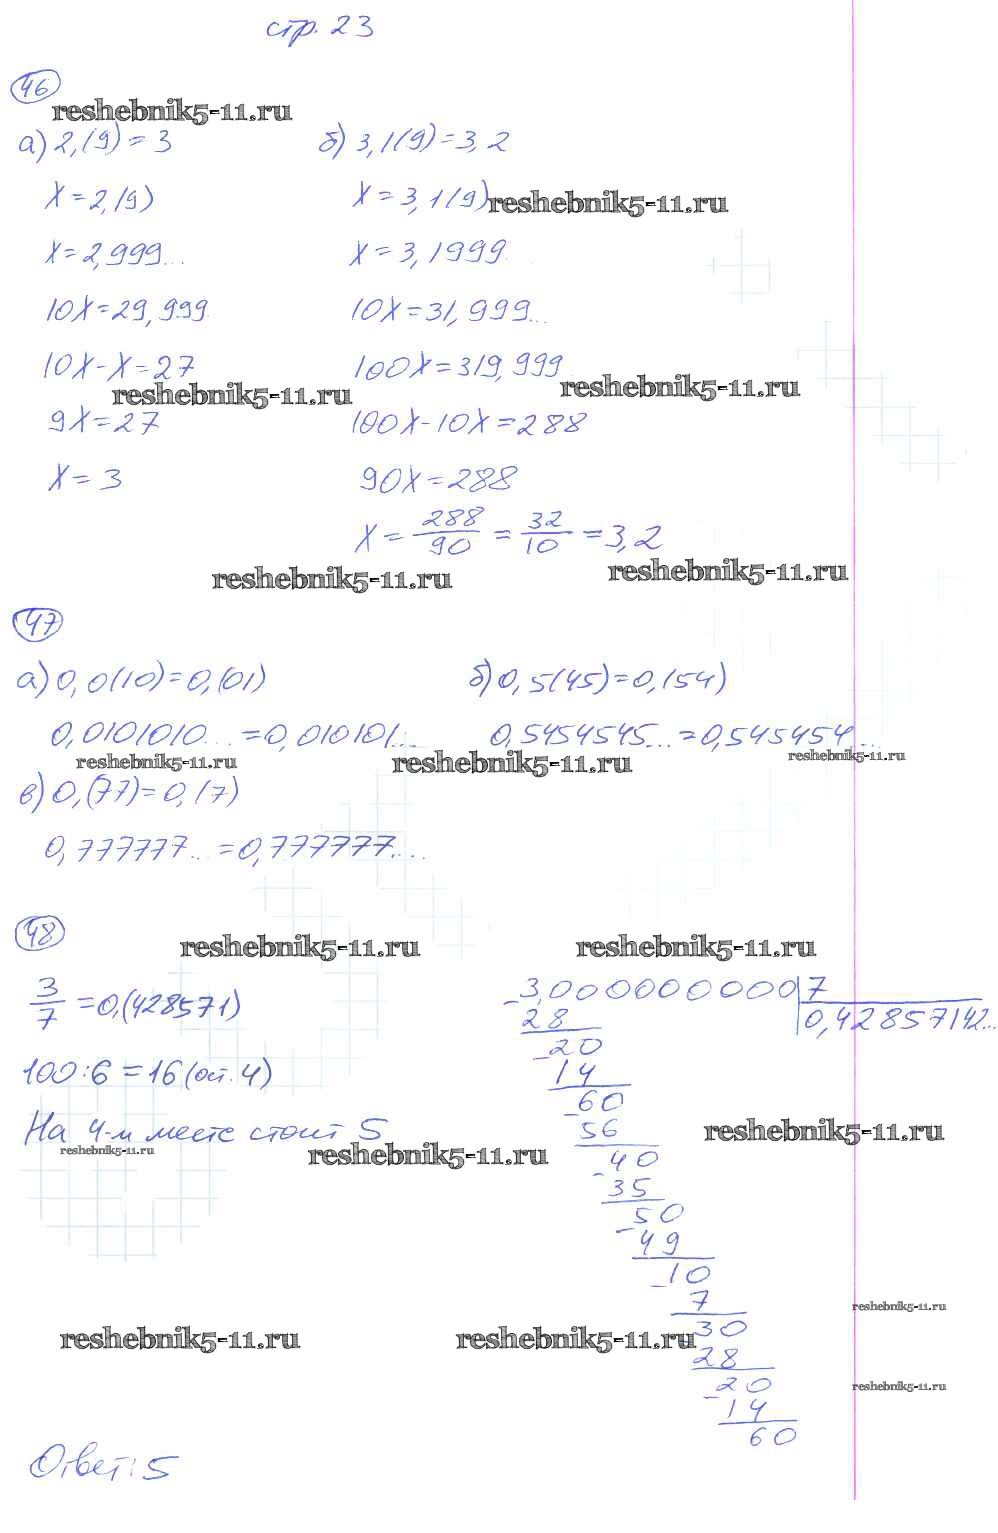 стр. 23
46
reshebnik5-11.ru
а) 2,(9) = 3
б) 3,1(9) = 3,2
x = 2,(9)
x = 3,1(9)
reshebnik5-11.ru
x = 2,999...
x = 3,1999..
10x = 29,999
10x = 31,999...
10x - x = 27
100x = 319,999
reshebnik5-11.ru
reshebnik5-11.ru
9x = 27
100x - 10x = 288
x = 3
90x = 288
x = 288/90 = 32/10 = 3,2
reshebnik5-11.ru
reshebnik5-11.ru
47
а) 0,0(10) = 0,(01)
б) 0,5(45) = 0,(54)
0,0101010... = 0,010101...
0,5454545... = 0,545454...
reshebnik5-11.ru
reshebnik5-11.ru
reshebnik5-11.ru
в) 0,(77) = 0,(7)
0,777777... = 0,777777...
48
reshebnik5-11.ru
reshebnik5-11.ru
3/7 = 0,(428571)
100 : 6 = 16 (ост. 4)
На 4-м месте стоит 5
reshebnik5-11.ru
reshebnik5-11.ru
reshebnik5-11.ru
3,0000000000 | 7
28
0,42857142...
20
14
60
56
40
35
50
49
10
7
30
28
20
14
60
reshebnik5-11.ru
reshebnik5-11.ru
reshebnik5-11.ru
reshebnik5-11.ru
Ответ: 5